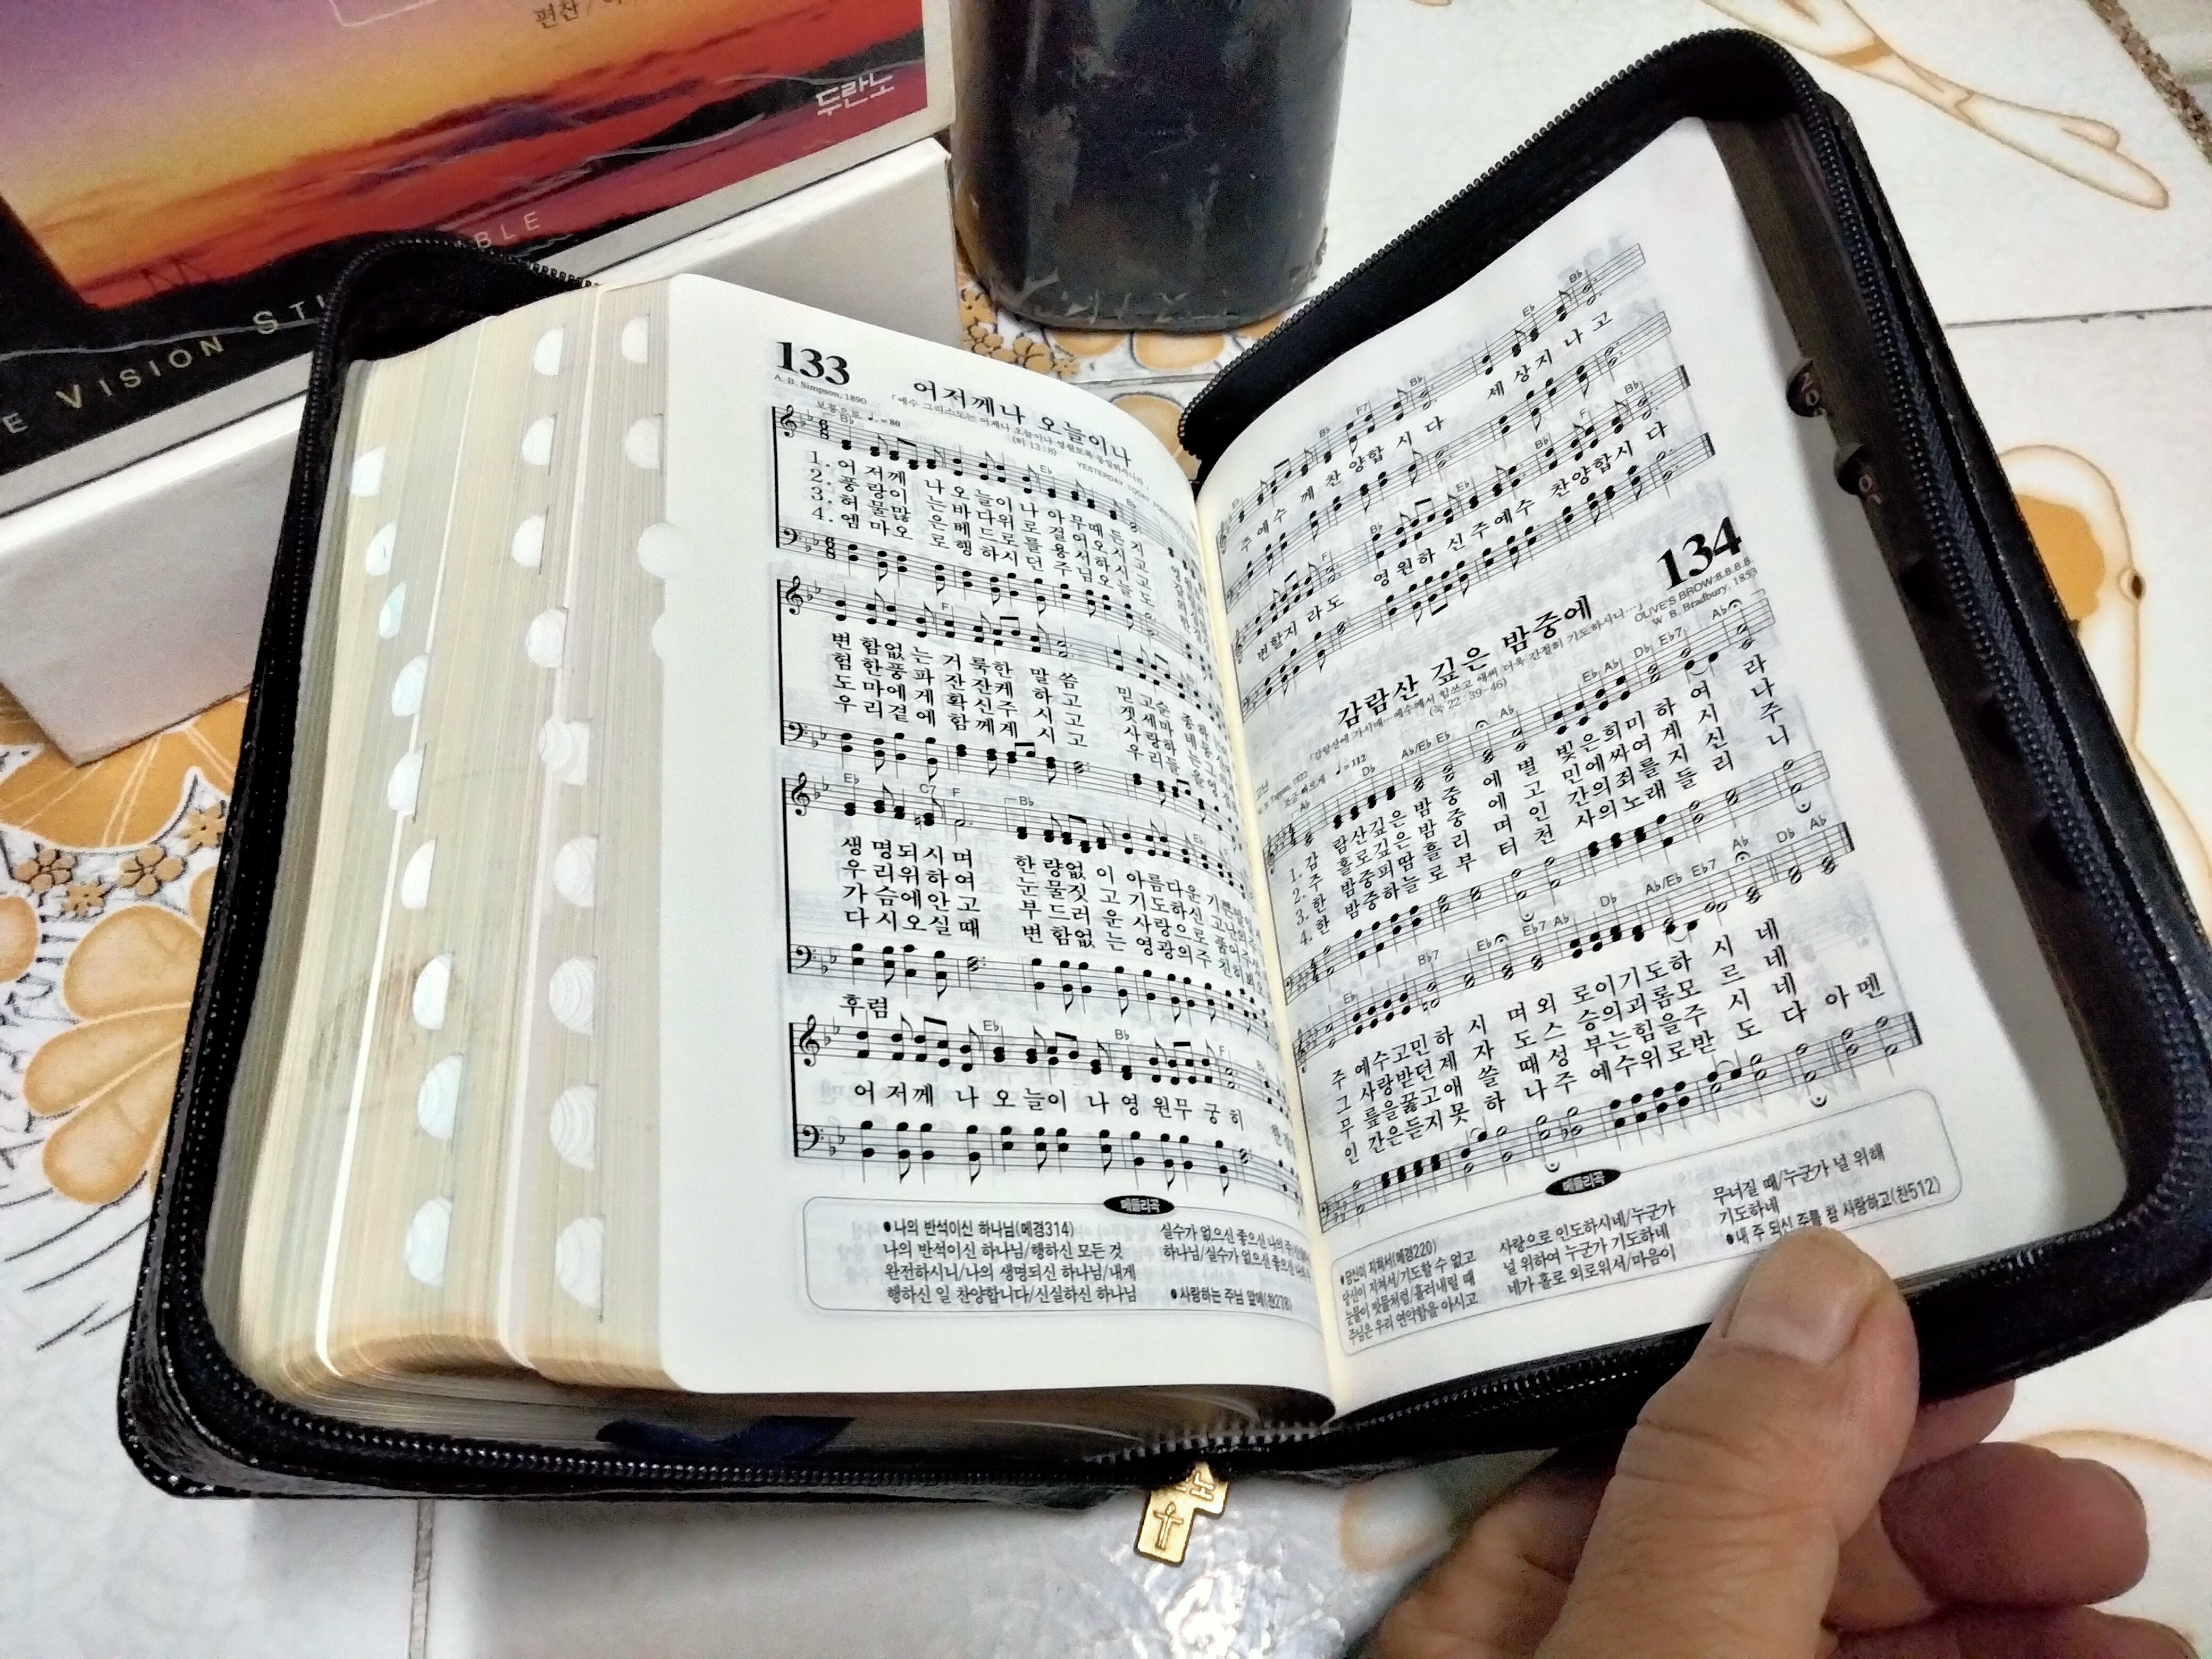 편찬
두란노
BLE
E VISION STU
133
A. B. Simpson, 1890
어저께나 오늘이나
「예수 그리스도는 어제나 오늘이나 영원토록 동일하시니라」
(히 13:8)
YESTERDAY TODAY
보통으로 ♩. = 80
B♭ E♭
1. 어 저께 나 오 늘이 나 아 무때 든 지
2. 풍 랑이 는 바 다위 로 걸 어오 시 고
3. 허 물많 은 베 드로 를 용 서하 시 고
4. 엠 마오 로 행 하시 던 주 님오 늘 도
F
변 함없 는 거 룩한 말 씀
험 한풍 파 잔 잔케 하 고
도 마에 게 확 신주 시 고
우 리곁 에 함 께계 시 고
E♭ C7 F B♭
생 명되 시 며 한 량없 이 아 름다 운
우 리위 하 여 눈 물짓 고 기 도하 신
가 슴에 안 고 부 드러 운 사 랑으 로
다 시오 실 때 변 함없 는 영 광의 주
후렴
E♭ B♭ F
어 저께 나 오 늘이 나 영 원무 궁 히
메들리곡
●나의 반석이신 하나님(메경314)
나의 반석이신 하나님/행하신 모든 것
완전하시니/나의 생명되신 하나님/내게
행하신 일 찬양합니다/신실하신 하나님
실수가 없으신 좋으신 나의 주
하나님/실수가 없으신 좋으신 나의
●사랑하는 주님 앞에(찬278)
B♭ F7 B♭ E♭ B♭
주 예수 께 찬 양합 시 다 세 상지 나 고
F B♭ E♭ B♭ F B♭
변할지 라도 영 원하 신 주 예수 찬양합시 다
134
감람산 깊은 밤중에
OLIVE'S BROW:8.8.8.8.
W. B. Bradbury, 1853
(눅 22:39-46)
조금 빠르게 ♩ = 112
A♭ D♭ A♭/E♭ E♭ A♭ E♭ A♭ D♭ E♭7 A♭
1. 감 람산깊 은 밤 중 에 별 빛 은희미 하 여 라
2. 주 홀로깊 은 밤 중 에 고 민에싸여 계 시 나
3. 한 밤중피땀 흘 리 며 인 간의죄를 지 신 주
4. 한 밤중하늘 로 부 터 천 사의노래 들 리 니
E♭ B♭7 E♭ E♭7 A♭ D♭ A♭/E♭ E♭7 A♭ D♭ A♭
주 예수고민 하 시 며 외 로이기도하 시 네
그 사랑받던 제 자 도 스 승의괴롬모 르 네
무 릎을꿇고 애 쓸 때 성 부는힘을주 시 네
인 간은듣지 못 하 나 주 예수위로받 도 다 아 멘
메들리곡
●당신이 지쳐서(메경220)
당신이 지쳐서/기도할 수 없고
눈물이 빗물처럼/흘러내릴 때
주님은 우리 연약함을 아시고
사랑으로 인도하시네/누군가
널 위하여 누군가 기도하네
네가 홀로 외로워서/마음이
무너질 때/누군가 널 위해
기도하네
●내 주 되신 주를 참 사랑하고(찬512)